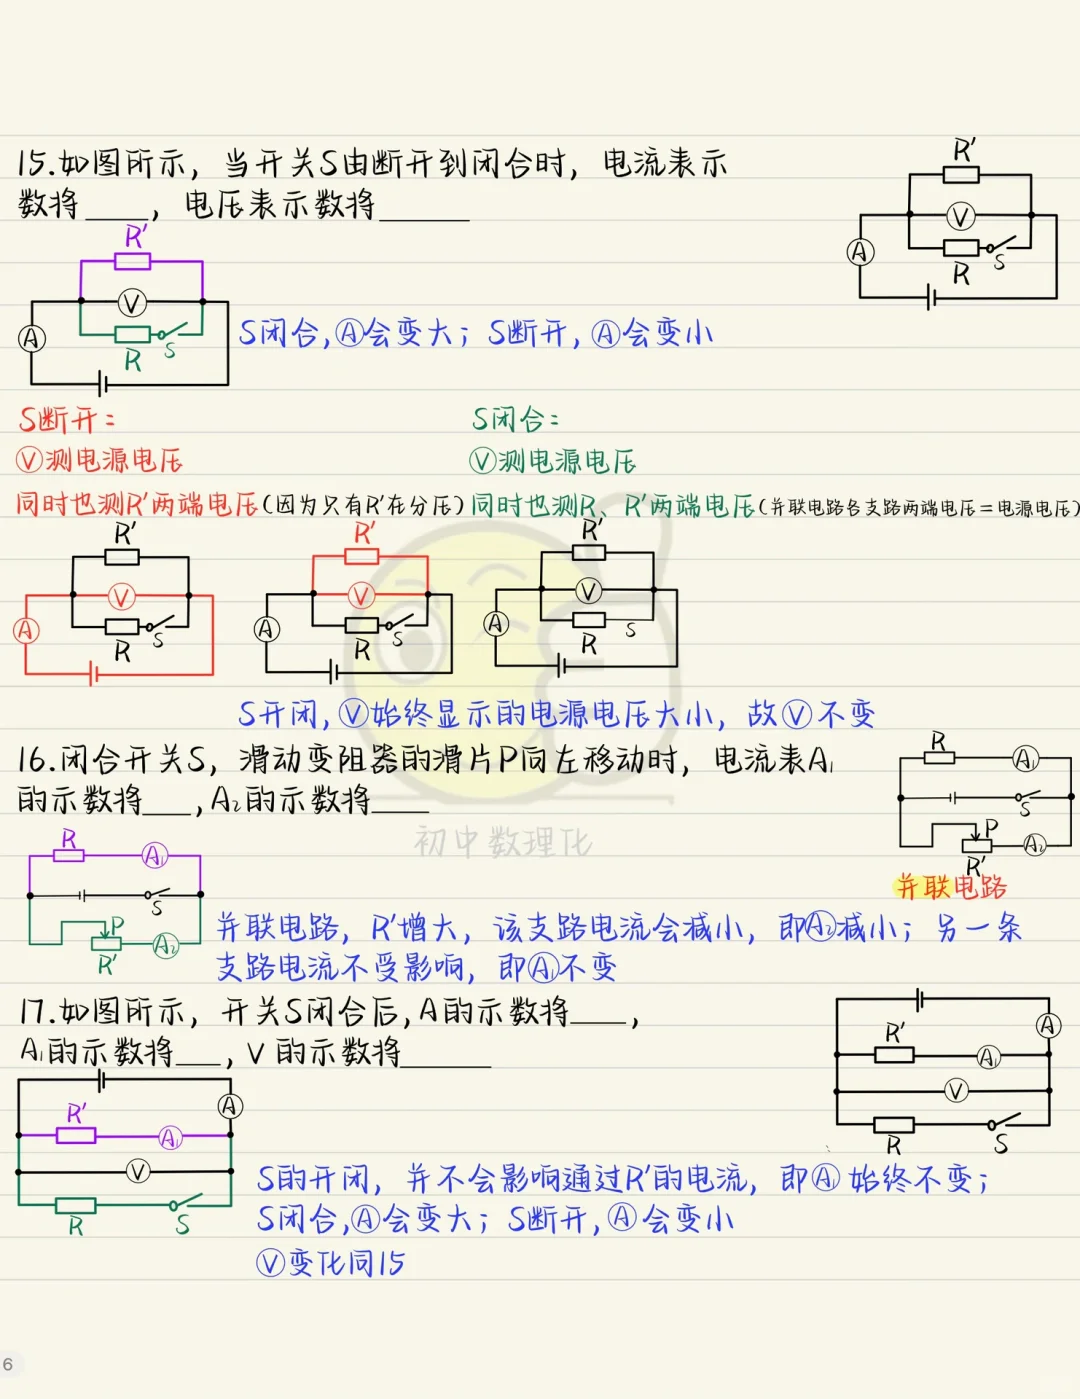 15.如图所示，当开关S由断开到闭合时，电流表示
数将____，电压表示数将______
R'
V
A
R
S
R'
V
A
R
S
S闭合,Ⓐ会变大；S断开,Ⓐ会变小
S断开：
S闭合：
Ⓥ测电源电压
Ⓥ测电源电压
同时也测R'两端电压(因为只有R'在分压)
同时也测R、R'两端电压(并联电路各支路两端电压=电源电压)
R'
V
A
R
S
R'
V
A
R
S
R'
V
A
R
S
S开闭,Ⓥ始终显示的电源电压大小，故Ⓥ不变
16.闭合开关S，滑动变阻器的滑片P向左移动时，电流表A₁
的示数将___,A₂的示数将____
初中数理化
R
A₁
S
P
A₂
R'
并联电路
R
A₁
S
P
A₂
R'
并联电路，R'增大，该支路电流会减小，即A₂减小；另一条
支路电流不受影响，即A₁不变
17.如图所示，开关S闭合后,A的示数将____,
A₁的示数将___,V的示数将______
A
R'
A₁
V
R
S
A
R'
A₁
V
R
S
S的开闭，并不会影响通过R'的电流，即A₁始终不变；
S闭合,Ⓐ会变大；S断开,Ⓐ会变小
Ⓥ变化同15
6